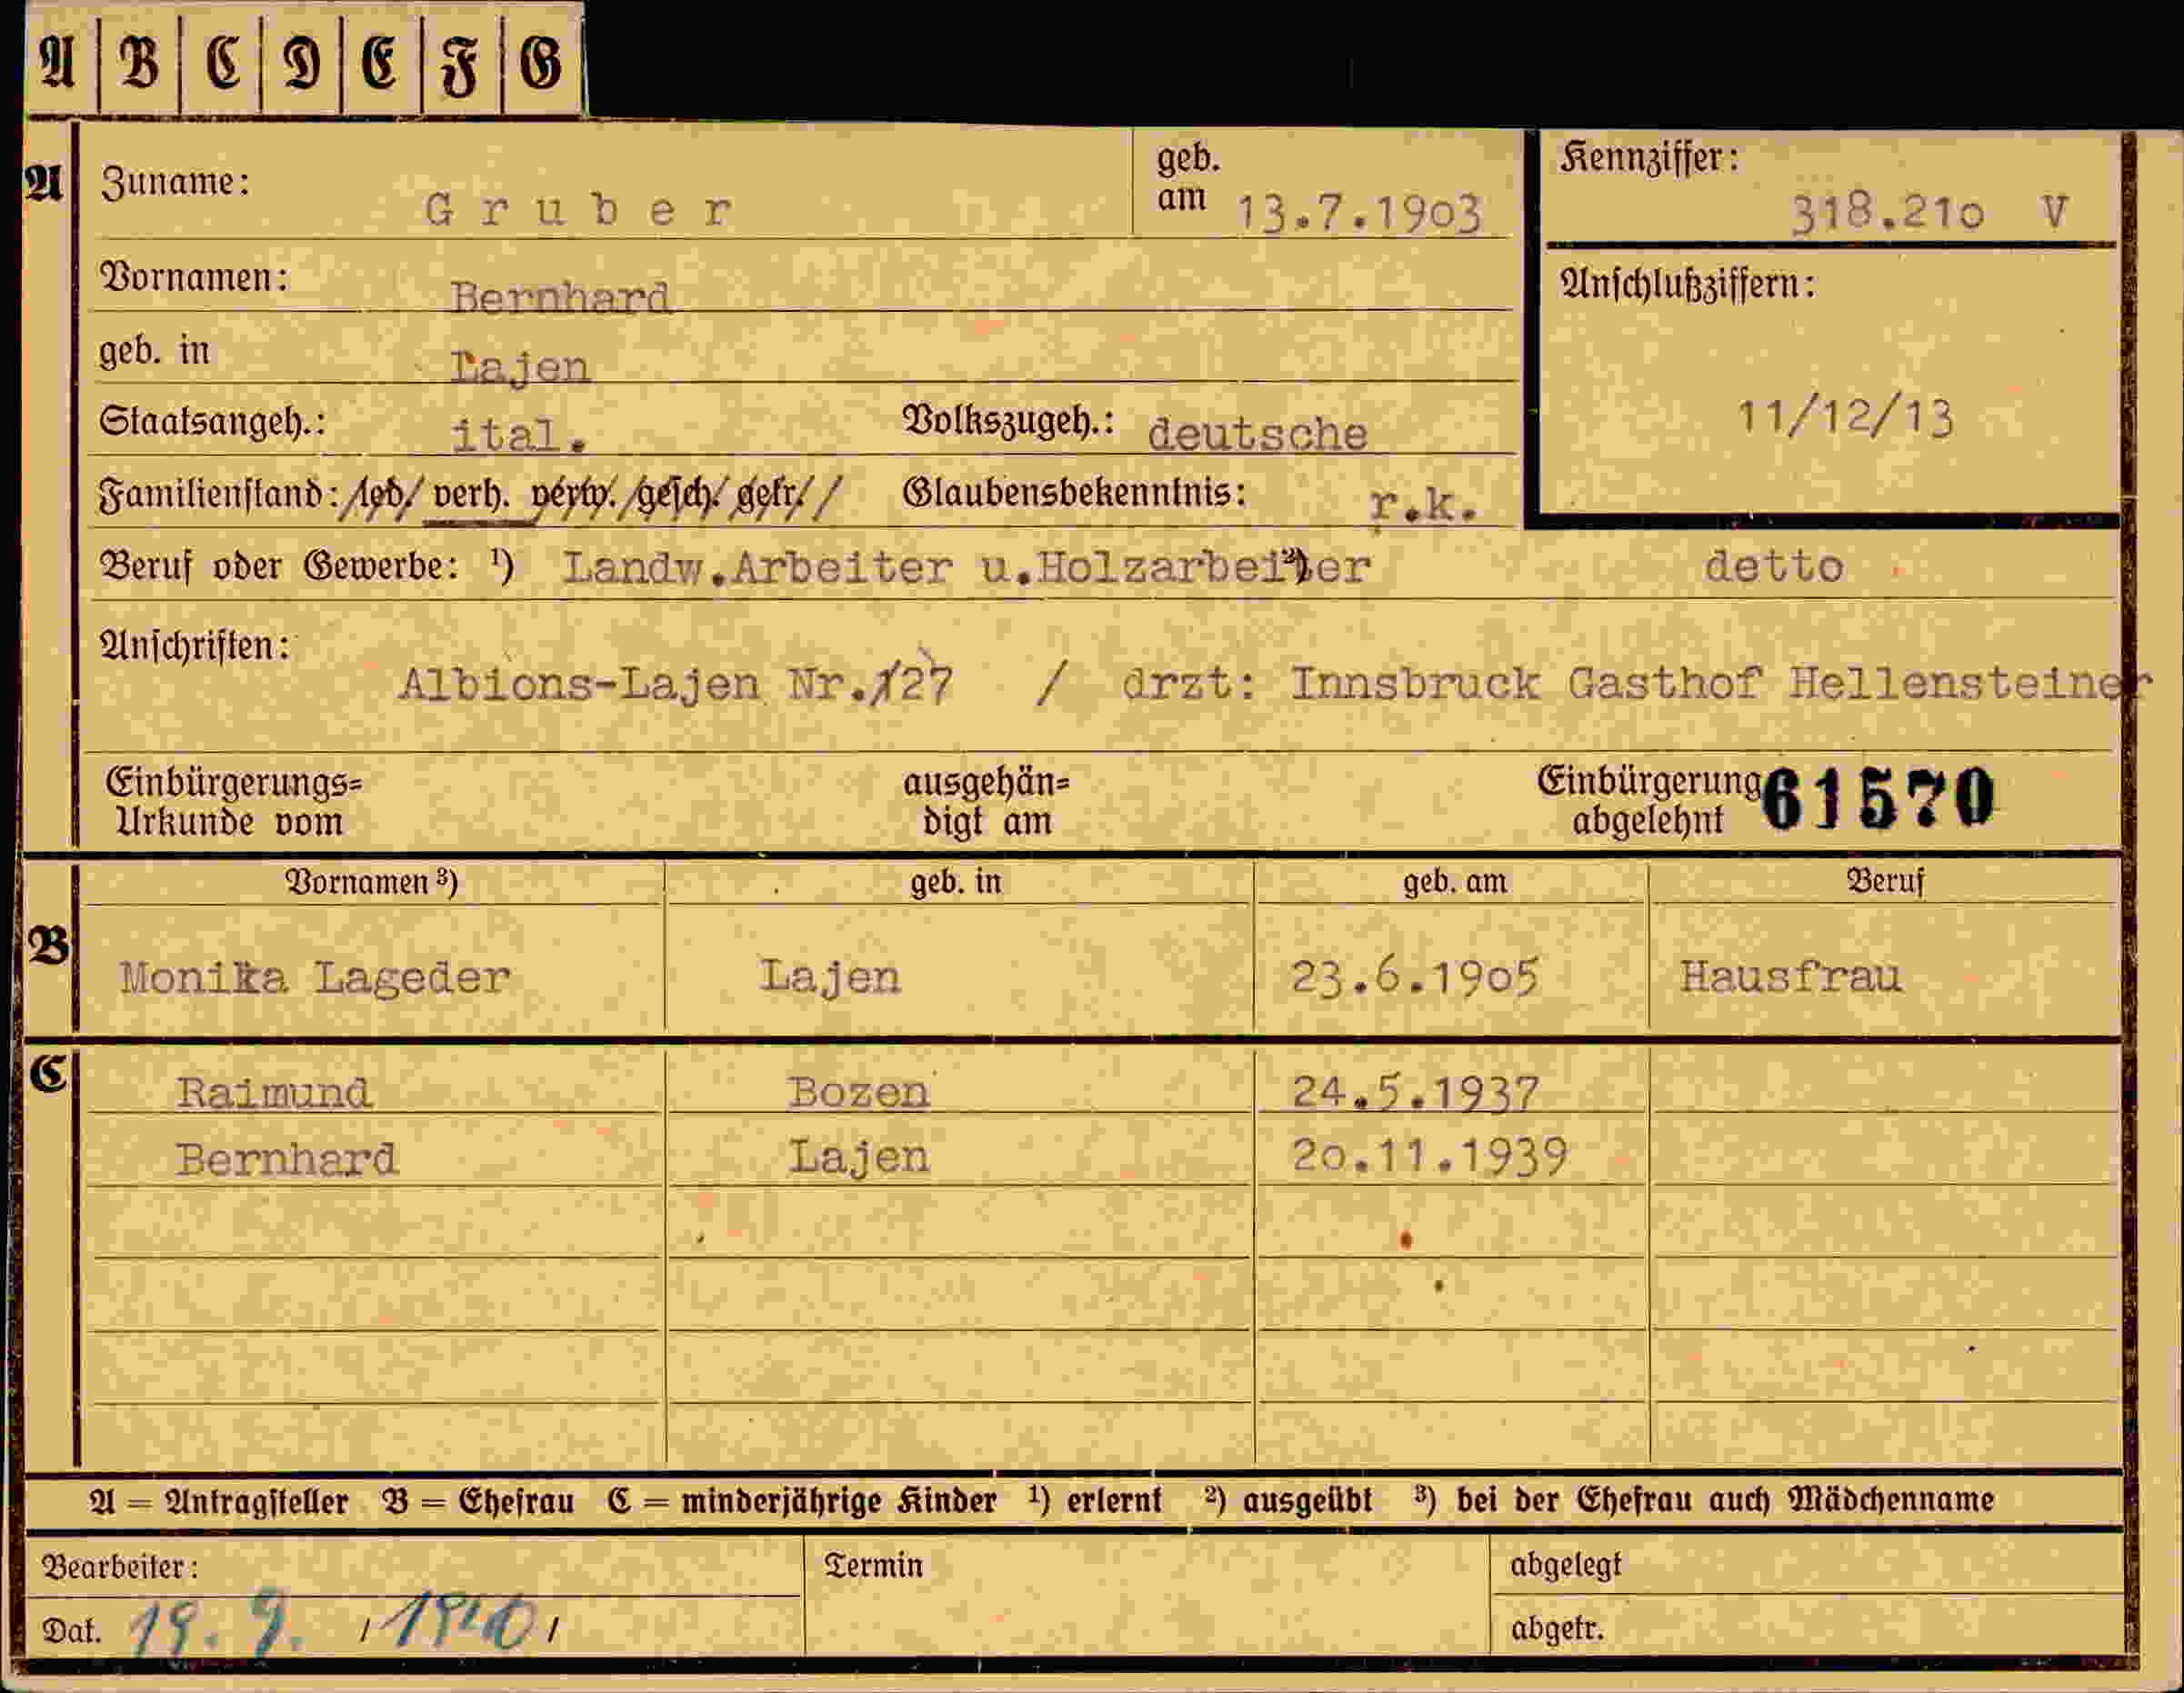 A B C D E F G
A Zuname: Gruber geb. am 13.7.1903 Kennziffer: 318.210 V
Vornamen: Bernhard Anschlußziffern:
geb. in Lajen
11/12/13
Staatsangeh.: ital. Volkszugeh.: deutsche
Familienstand: /led/ verh. verw. /gesch/ getr. // Glaubensbekenntnis: r.k.
Beruf oder Gewerbe: ¹) Landw.Arbeiter u.Holzarbeiter ²) detto
Anschriften:
Albions-Lajen Nr.127 / drzt: Innsbruck Gasthof Hellensteiner
Einbürgerungs= ausgehän= Einbürgerung 61570
Urkunde vom digt am abgelehnt
Vornamen ³) geb. in geb. am Beruf
B Monika Lageder Lajen 23.6.1905 Hausfrau
C Raimund Bozen 24.5.1937
Bernhard Lajen 20.11.1939
A = Antragsteller B = Ehefrau C = minderjährige Kinder ¹) erlernt ²) ausgeübt ³) bei der Ehefrau auch Mädchenname
Bearbeiter: Termin abgelegt
Dat. 19. 9. /1940/ abgetr.